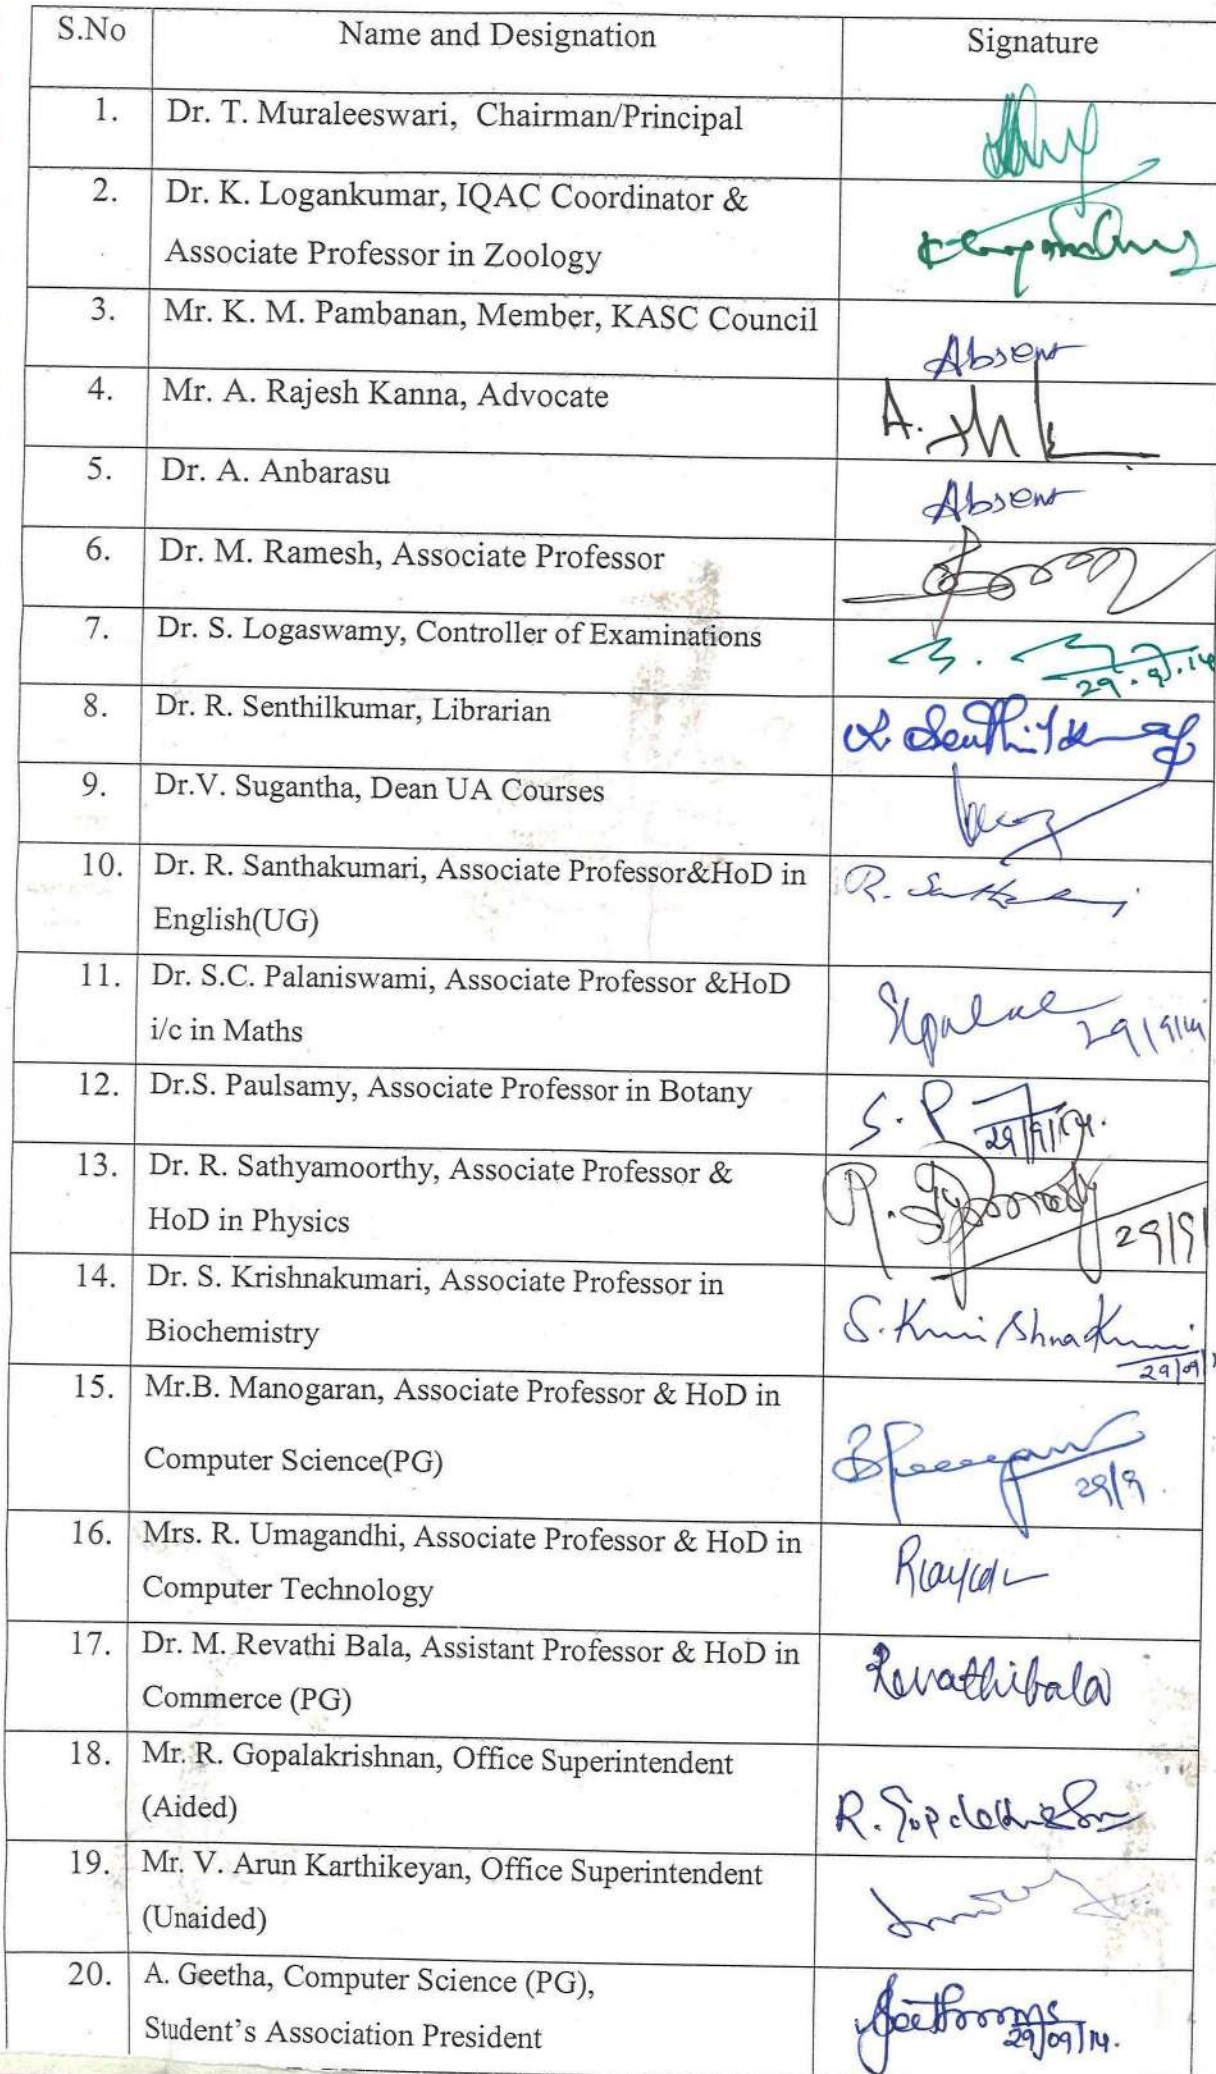 S.No Name and Designation Signature
1. Dr. T. Muraleeswari, Chairman/Principal
2. Dr. K. Logankumar, IQAC Coordinator &
Associate Professor in Zoology
3. Mr. K. M. Pambanan, Member, KASC Council
Absent
4. Mr. A. Rajesh Kanna, Advocate
A.
5. Dr. A. Anbarasu
Absent
6. Dr. M. Ramesh, Associate Professor
7. Dr. S. Logaswamy, Controller of Examinations
29.9.14
8. Dr. R. Senthilkumar, Librarian
9. Dr.V. Sugantha, Dean UA Courses
10. Dr. R. Santhakumari, Associate Professor&HoD in
R.
English(UG)
11. Dr. S.C. Palaniswami, Associate Professor &HoD
i/c in Maths
29/9/14
12. Dr.S. Paulsamy, Associate Professor in Botany
S. P
29/9/14.
13. Dr. R. Sathyamoorthy, Associate Professor &
R.
HoD in Physics
29/9/
14. Dr. S. Krishnakumari, Associate Professor in
Biochemistry
S. Krishnakumari
29/09/
15. Mr.B. Manogaran, Associate Professor & HoD in
Computer Science(PG)
29/9.
16. Mrs. R. Umagandhi, Associate Professor & HoD in
Computer Technology
17. Dr. M. Revathi Bala, Assistant Professor & HoD in
Revathibala
Commerce (PG)
18. Mr. R. Gopalakrishnan, Office Superintendent
(Aided)
R. Gopalakrishnan
19. Mr. V. Arun Karthikeyan, Office Superintendent
(Unaided)
20. A. Geetha, Computer Science (PG),
Student's Association President
29/09/14.